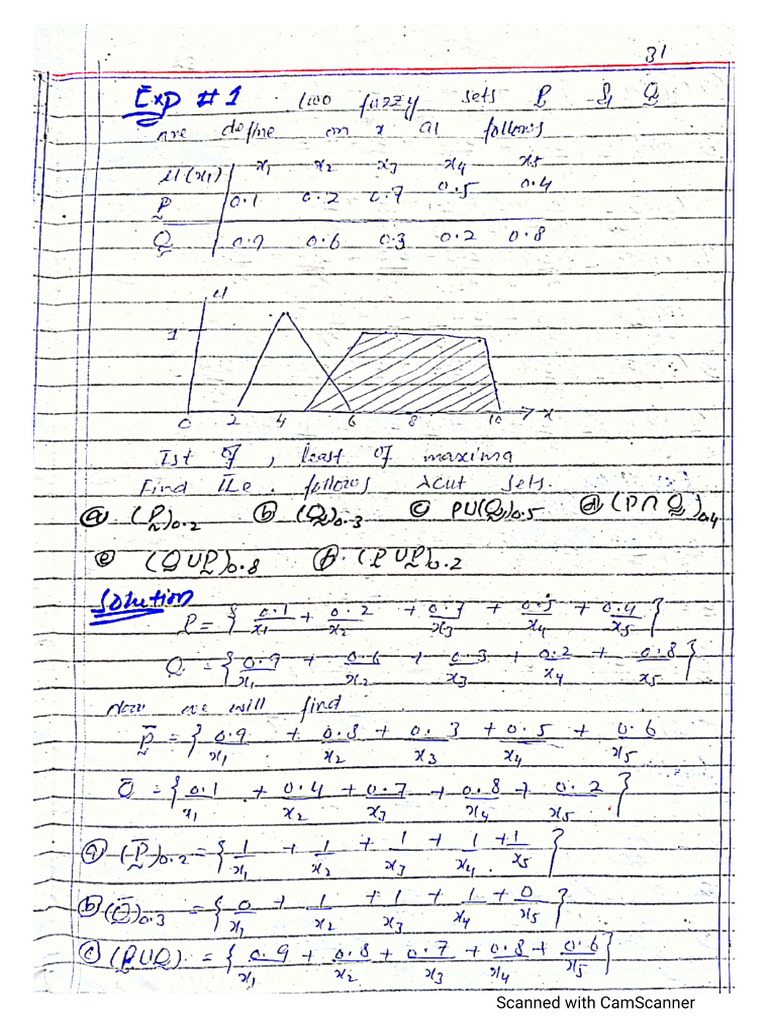 31
Exp # 1 . two fuzzy sets P & Q
are define on x as follows
μ(x1) | x1 x2 x3 x4 x5
P 0.1 0.2 0.7 0.5 0.4
Q 0.9 0.6 0.3 0.2 0.8
μ
1
0 2 4 6 8 10 → x
Ist of , least of maxima
Find the follows λcut sets.
(a) (P)0.2 (b) (Q)0.3 (c) PU(Q)0.5 (d) (P∩Q)0.4
(e) (Q∪P)0.8 (f). (P∪P)0.2
Solution
P = { 0.1/x1 + 0.2/x2 + 0.7/x3 + 0.5/x4 + 0.4/x5 }
Q = { 0.9/x1 + 0.6/x2 + 0.3/x3 + 0.2/x4 + 0.8/x5 }
Now we will find
P̄ = { 0.9/x1 + 0.8/x2 + 0.3/x3 + 0.5/x4 + 0.6/x5
Q̄ = { 0.1/x1 + 0.4/x2 + 0.7/x3 + 0.8/x4 + 0.2/x5 }
(a) (P̄)0.2 = { 1/x1 + 1/x2 + 1/x3 + 1/x4 + 1/x5 }
(b) (Q̄)0.3 = { 0/x1 + 1/x2 + 1/x3 + 1/x4 + 0/x5 }
(c) (P∪Q). = { 0.9/x1 + 0.8/x2 + 0.7/x3 + 0.8/x4 + 0.6/x5 }
Scanned with CamScanner